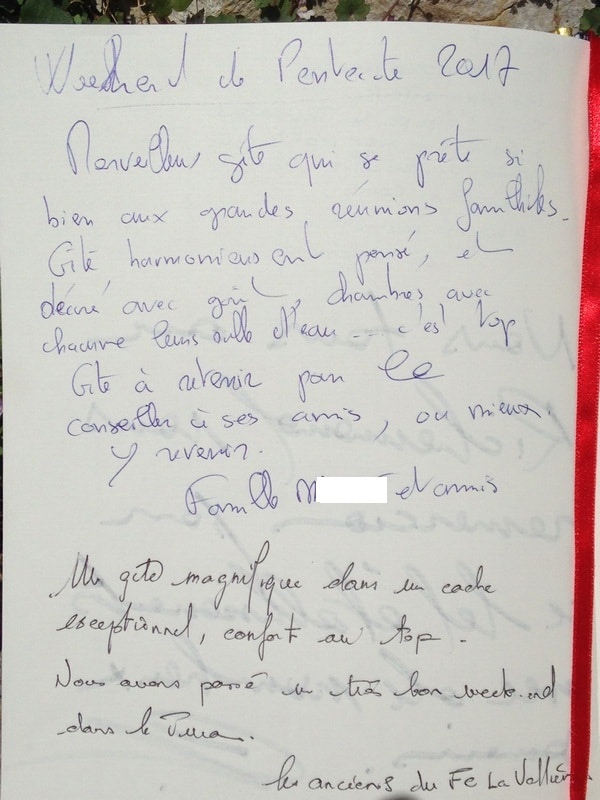 Weekend de Pentecôte 2017
Merveilleux gîte qui se prête si
bien aux grandes réunions familiales.
Gîte harmonieusement pensé, et
décoré avec goût, chambres avec
chacune leurs salle d'eau --- c'est top
Gîte à retenir pour le
conseiller à ses amis, ou mieux
y revenir.
Famille et amis
Un gite magnifique dans un cadre
exceptionnel, confort au top.
Nous avons passé un très bon week-end
dans le
les anciens du FC La Vallière